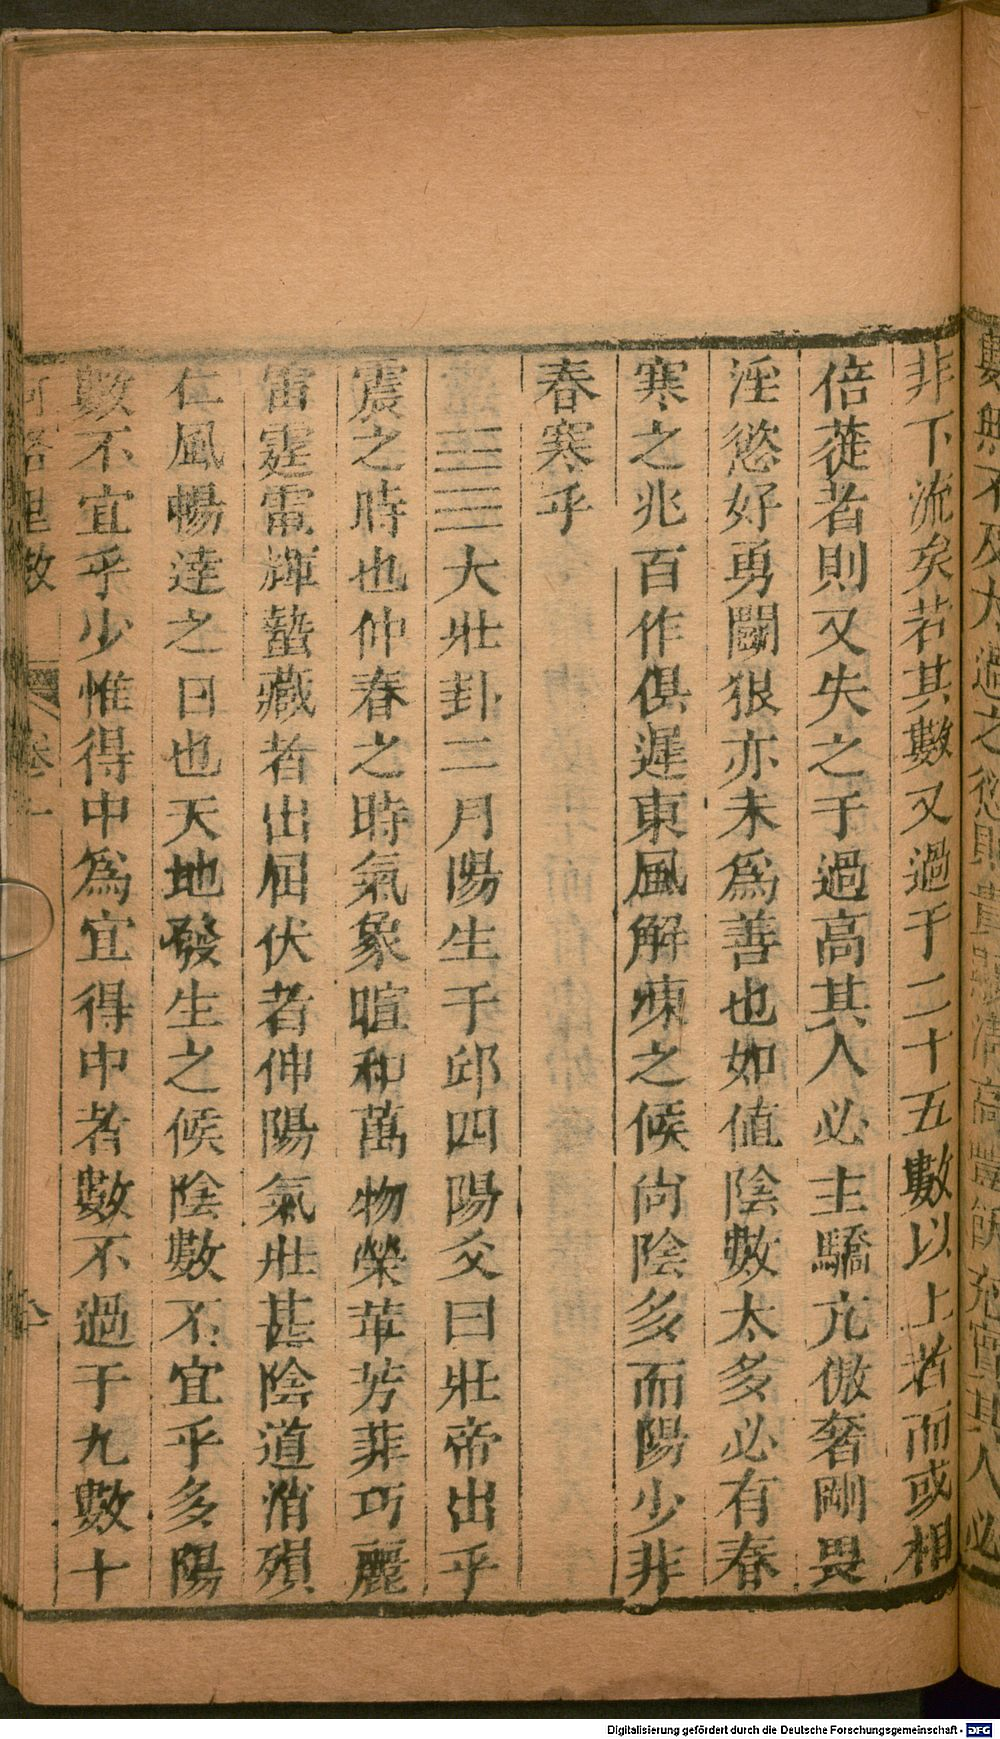 數然不及太過之愆則貴顯清高豐飲充實其人必
非下流矣若其數又過于二十五數以上者而或相
倍蓰者則又失之于過高其人必主驕亢傲奢剛畏
淫慾好勇鬬狠亦未為善也如值陰數太多必有春
寒之兆百作俱遲東風解凍之候尚陰多而陽少非
春寒乎
大壯卦二月陽生于卯四陽爻曰壯帝出乎
震之時也仲春之時氣象暄和萬物榮華芳菲巧麗
雷霆電輝蟄藏者出屈伏者伸陽氣壯甚陰道消殞
仁風暢達之日也天地發生之候陰數不宜乎多陽
數不宜乎少惟得中為宜得中者數不過于九數十
河洛理數 卷一
Digitalisierung gefördert durch die Deutsche Forschungsgemeinschaft - DFG